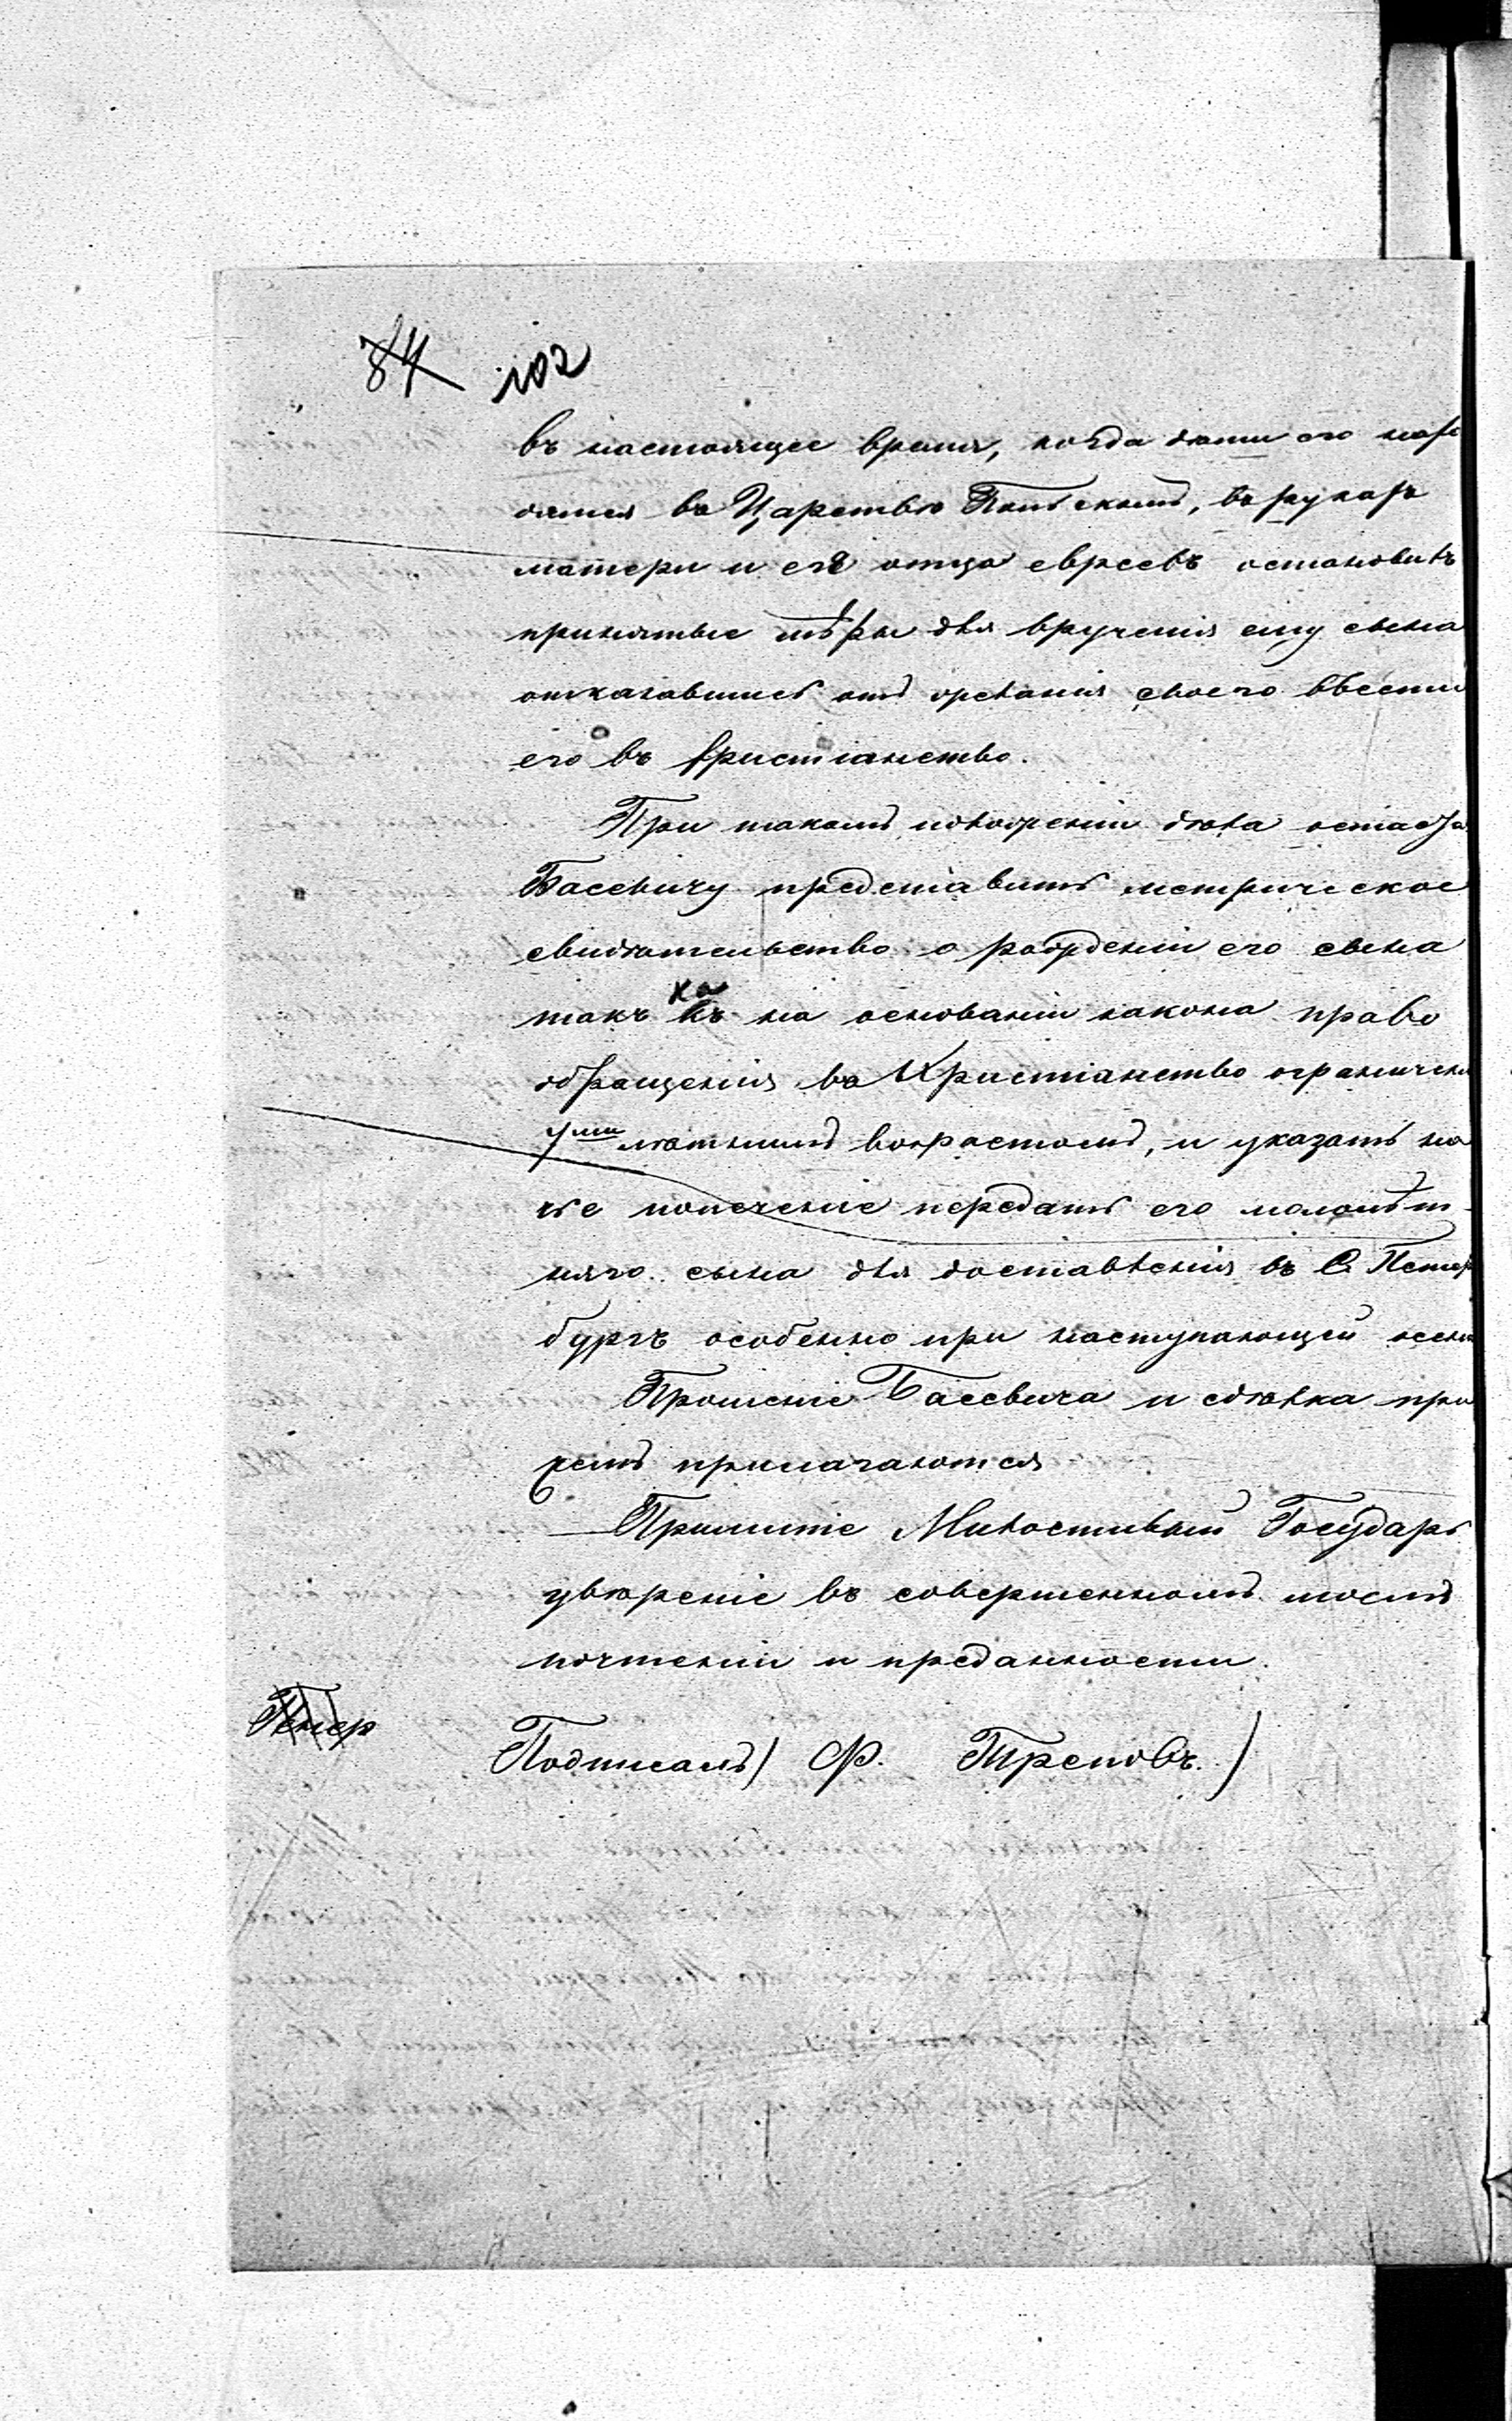 84 102
въ настоящее время, когда дѣти его нахо
дятся въ Царствѣ Польскомъ, въ рукахъ
матери и её отца евреевъ остановить
принятые мѣры для врученія ему сына
отказавшись отъ желанія своего ввести
его въ христіанство.
При такомъ положеніи дѣла остается
Бассевичу представить метрическое
свидѣтельство о рожденіи его сына
такъ какъ на основаніи закона право
обращенія въ Христіанство ограничено
7ми лѣтнимъ возрастомъ, и указать на
чье попеченіе передать его малолѣт-
няго сына для доставленія въ С. Петер
бургъ особенно при наступающей осени
Прошеніе Бассевича и сдѣлка при
семъ прилагаются
Примите Милостивый Государь
увѣреніе въ совершенномъ моемъ
почтеніи и преданности.
Генер
Подписалъ) Ф. Треповъ.)